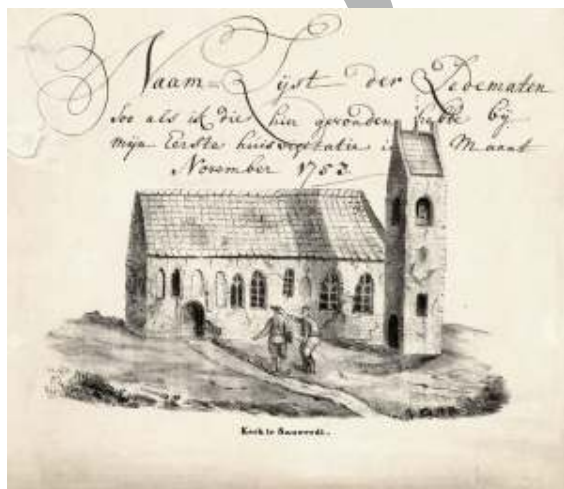 Naam-Lyst der Ledematen
Soo als ik die hier gevonden hebbe by
mijn Eerste huis visitatie in Maant
November 1753.
Kerk te Sauwerdt.